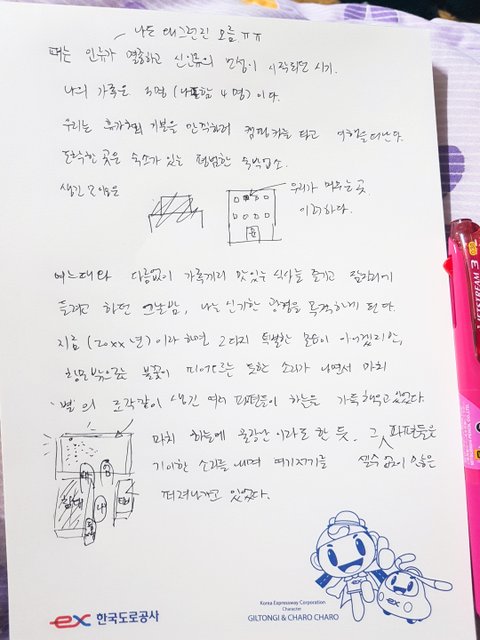 나는 왜 그런진 모름 ㅠㅠ
때는 인류가 멸종하고 신인류의 번성이 시작되던 시기.
나의 가족은 3명 (나포함 4명) 이다.
우리는 휴가처럼 기분을 만끽하러 캠핑카를 타고 여행을 떠난다.
도착한 곳은 숙소가 있는 평범한 숙박업소.
생긴 모양은
우리가 머무는 곳
이러하다.
여느때와 다름없이 가족끼리 맛있는 식사를 즐기고 잠자리에
들려고 하던 그날밤, 나는 신기한 광경을 목격하게 된다.
지금 (20xx년) 이라 하면 그다지 특별한 모습이 아니겠지만,
창문 밖으로는 불꽃이 튀어오르는 듯한 소리가 나면서 마치
'별'의 조각같이 생긴 여러 파편들이 하늘을 가득 채우고 있었다.
마치 하늘에 구멍난 이라도 한 듯. 그 파편들은
기이한 소리를 내며 여기저기를 셀수 없이 많은
떨어지고 있었다.
나
ex 한국도로공사
Korea Expressway Corporation
Character
GILTONGI & CHARO CHARO
JETSTREAM 3